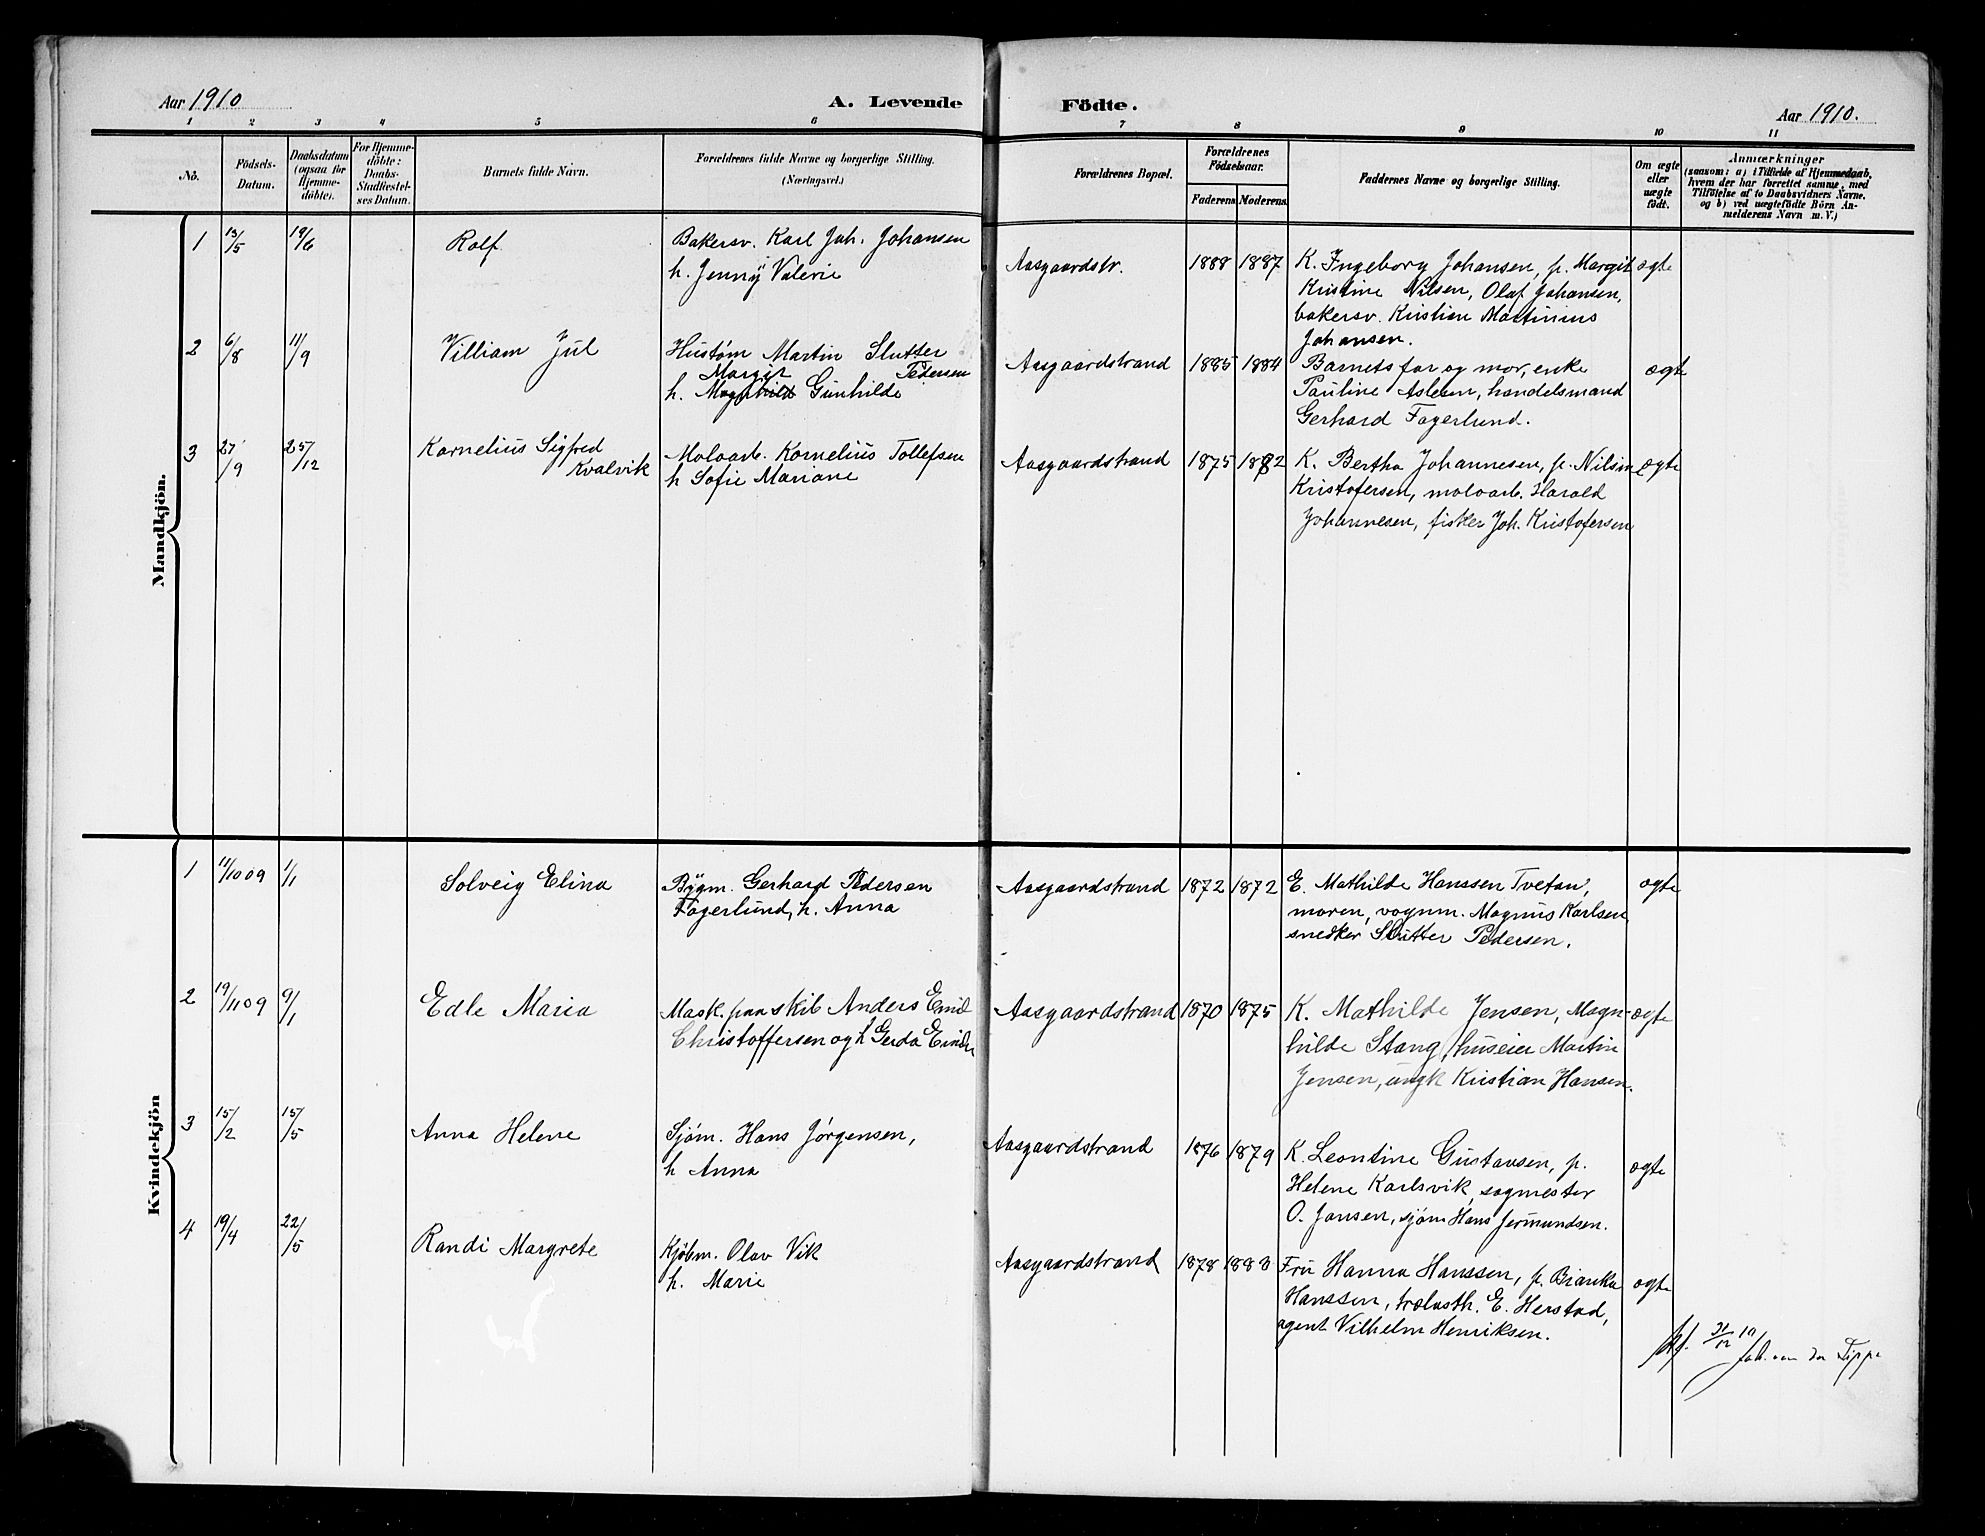 Aar 1910
A. Levende
Födte.
Aar 1910.
1 2 3 4 5 6 7 8 9 10 11
No.
Födsels-
Datum.
Daabsdatum
(ogsaa for
Hjemme-
döbte).
For Hjemme-
döbte:
Daabs-
Stadfæstel-
ses Datum.
Barnets fulde Navn.
Forældrenes fulde Navne og borgerlige Stilling.
(Næringsvei.)
Forældrenes Bopæl.
Forældrenes
Födselsaar.
Faderens Moderens
Faddernes Navne og borgerlige Stilling.
Om ægte
eller
uægte
födt.
Anmærkninger
(saasom: a) i Tilfælde af Hjemmedaab,
hvem der har forrettet samme, med
Tilföielse af to Daabsvidners Navne.
og b) ved uægtefödte Börn An-
melderens Navn m. V.)
Mandkjön.
1 13/5 19/6 Rolf
Bakersv. Karl Joh. Johansen
h. Jenny Valerie
Aasgaardstr. 1888 1887
K. Ingeborg Johansen, p. Margit ægte
Kristine Nilsen, Olaf Johansen,
bakersv. Kristian Martinius
Johansen.
2 6/8 11/9 Villiam Jul
Hustøm Martin Slutter
Pedersen
Margit
h. Magnhild Gunhilde
Aasgaardstrand 1885 1884
Barnets far og mor, enke ægte
Pauline Aslesen, handelsmand
Gerhard Fagerlund.
3 27/9 25/12 Kornelius Sigfred
Kvalvik
Moloarb. Kornelius Tollefsen
h Sofie Mariane
Aasgaardstrand 1875 1882
K. Bertha Johannesen, p. Nilsine ægte
Kristofersen, moloarb. Harald
Johannesen, fisker Joh. Kristofersen
Kvindekjön
1 11/10 09 1/1 Solveig Elina
Bygm. Gerhard Pedersen
Fagerlund, h. Anna
Aasgaardstrand 1872 1872
E. Mathilde Hanssen Tvetan, ægte
moren, vognm. Magnus Karlsen
snedker Slutter Pedersen.
2 19/11 09 9/1 Edle Maria
Mask. paa skib Anders Emil
Christoffersen og h Gerda
Aasgaardstrand 1870 1875
K. Mathilde Jensen, Magn- ægte
hilde Stang, huseier Martin
Jensen, ungk Kristian Hansen.
3 15/2 15/5 Anna Helene
Sjøm. Hans Jørgensen,
h Anna
Aasgaardstrand 1876 1879
K. Leontine Gustavsen, p. ægte
Helene Karlsvik, sagmester
O. Jansen, sjøm Hans Jermundsen.
4 19/4 22/5 Randi Margrete
Kjøbm. Olav Vik
h. Marie
Aasgaardstrand 1878 1883
Fru Hanna Hanssen, p. Bianka ægte
Hanssen, trælasth. E. Herstad,
agent Vilhelm Henriksen.
31/12 10